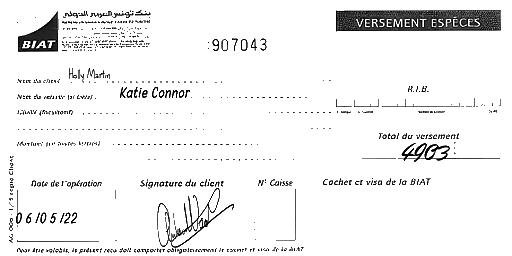 بنك تونس العربي الدولي
BIAT
VERSEMENT ESPÈCES
:907043
Nom du client Holly Martin
Nom du verseur (si tiers) Katie Connor
R.I.B.
Libellé (facultatif)
Montant (en toutes lettres)
Total du versement
4903
Date de l'opération
Signature du client
N° Caisse
Cachet et visa de la BIAT
06/05/22
Pour être valable, le présent reçu doit comporter obligatoirement le cachet et visa de la BIAT